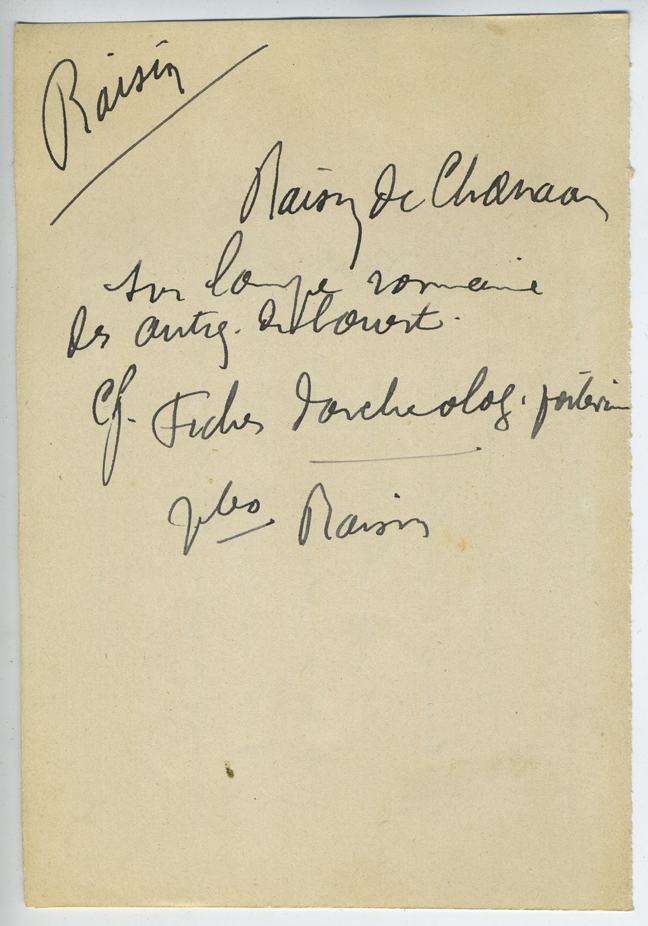 Raisin
Raisin de Chanaan
sur lampe romaine
des antiq. de l'ouest.
Cf. Fiches d'archeolog.
Raisin